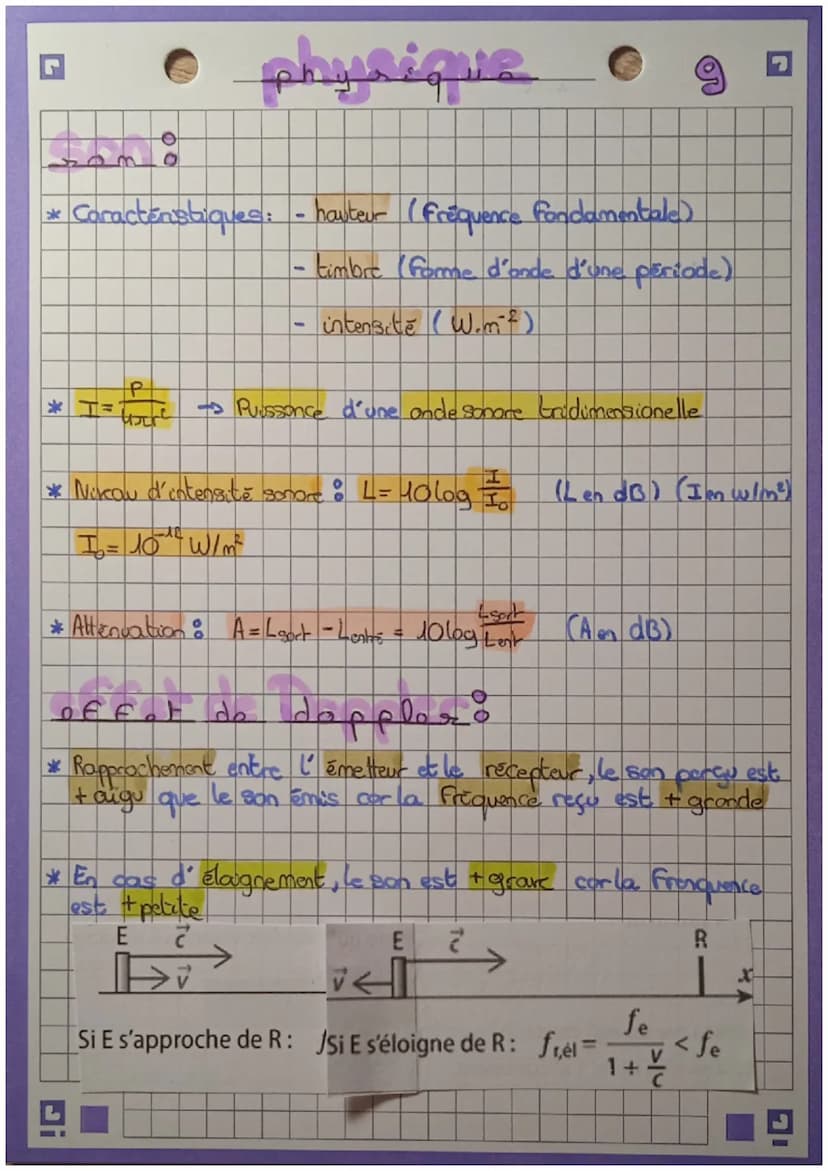 physique
9
son :
* Caractéristiques : - hauteur (fréquence fondamentale)
- timbre (forme d'onde d'une période)
- intensité (W.m⁻²)
* I = P/4πr² → Puissance d'une onde sonore tridimensionelle
* Niveau d'intensité sonore : L = 10 log I/I₀ (L en dB) (I en w/m²)
I₀ = 10⁻¹² W/m²
* Atténuation : A = Lsort - Lentré = 10 log Lsort/Lent (A en dB)
effet de doppler :
* Rapprochement entre l'émetteur et le récepteur, le son perçu est
+ aigu que le son émis car la fréquence reçu est + grande
* En cas d'éloignement, le son est + grave car la frenquence
est + petite
E c⃗ E c⃗ R
v⃗ v⃗ x
Si E s'approche de R : Si E s'éloigne de R : fr,él = fe/(1 + v/c) < fe